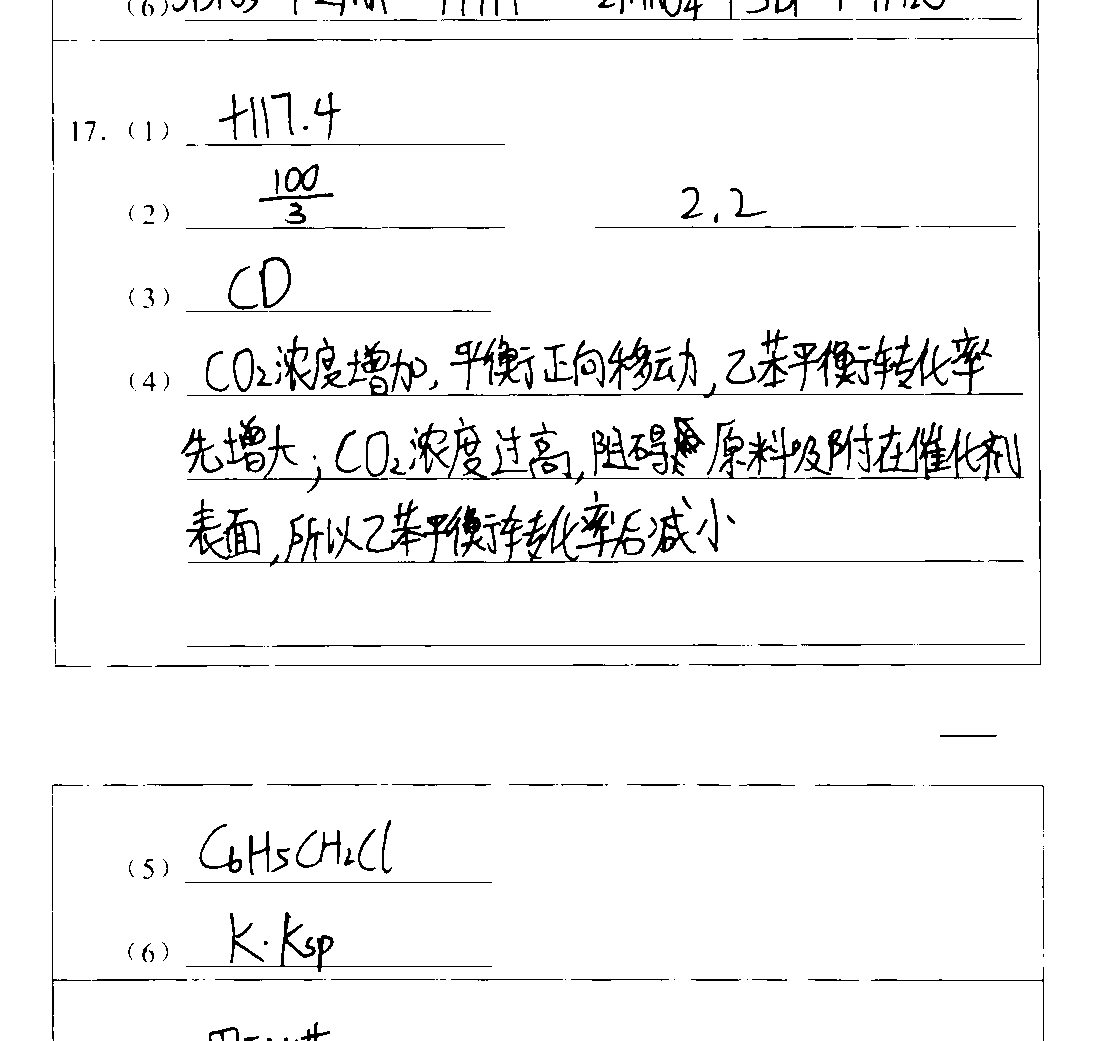 (6)
17. (1) +117.4
(2) 100/3 2.2
(3) CD
(4) CO₂浓度增加,平衡正向移动,乙苯平衡转化率
先增大;CO₂浓度过高,阻碍原料吸附在催化剂
表面,所以乙苯平衡转化率后减小
(5) C₆H₅CH₂Cl
(6) K·Ksp